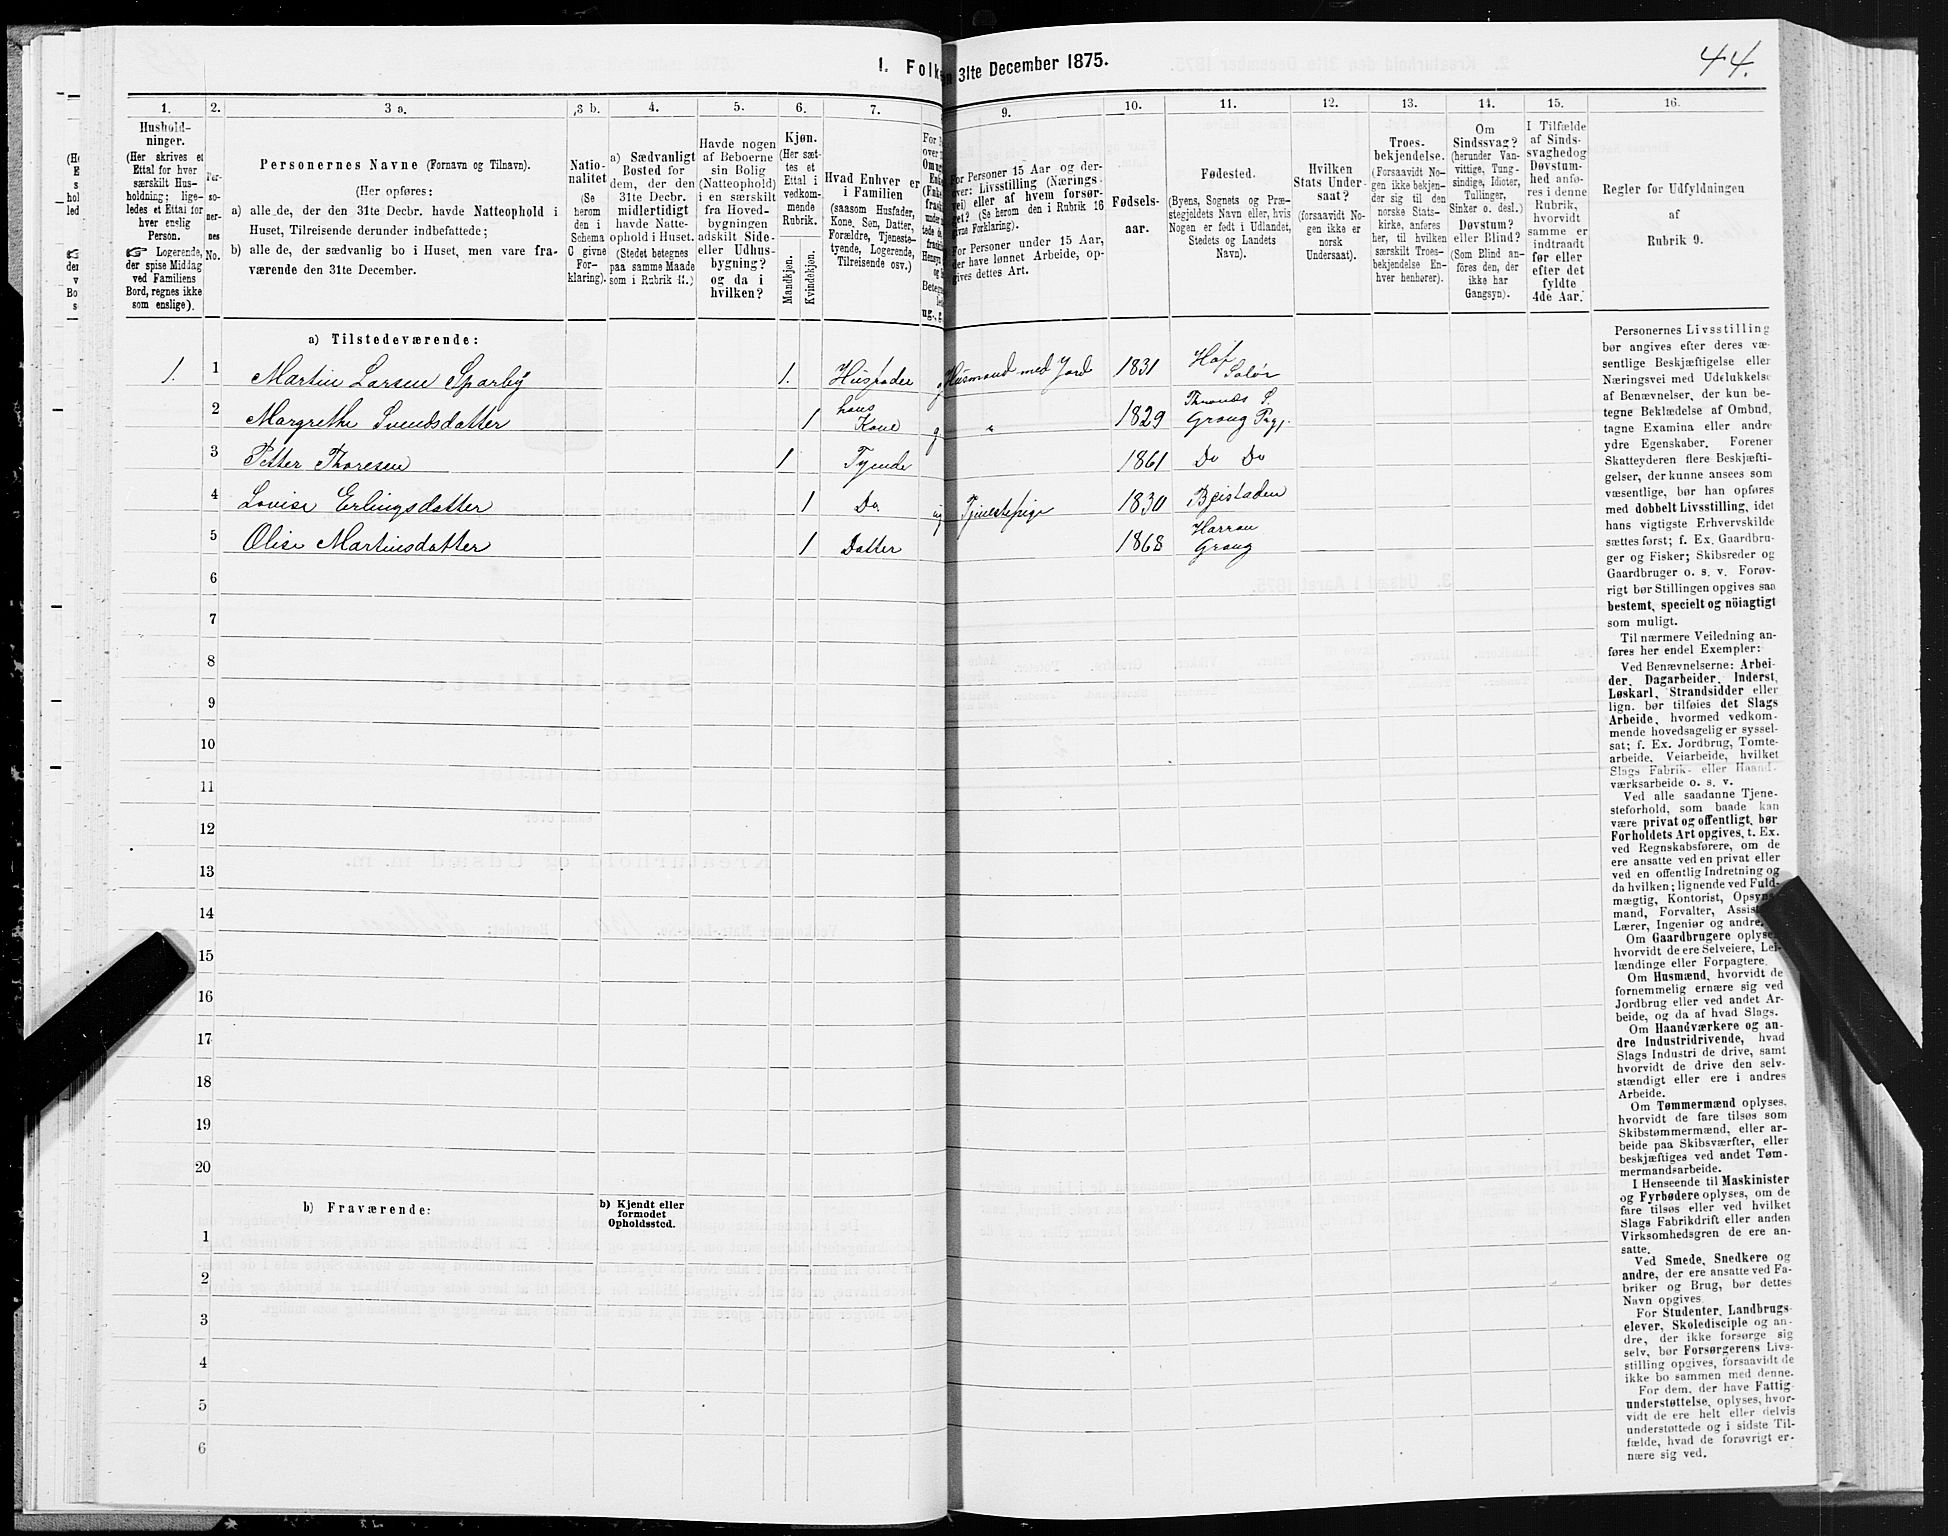 44.
1. Folk
en 31te December 1875.
1.
2.
3 a.
3 b.
4.
5.
6.
7.
9.
10.
11.
12.
13.
14.
15.
16.
Hushold-
ninger.
(Her skrives et
Ettal for hver
særskilt Hus-
holdning; lige-
ledes et Ettal for
hver enslig
Person.
Logerende,
der spise Middag
ved Familiens
Bord, regnes ikke
som enslige).
Per-
so-
ner-
nes
No.
Personernes Navne (Fornavn og Tilnavn).
(Her opføres:
a) alle de, der den 31te Decbr. havde Natteophold i
Huset, Tilreisende derunder indbefattede;
b) alle de, der sædvanlig bo i Huset, men vare fra-
værende den 31te December.
Natio-
nalitet
(Se
herom
den i
Schema
C givne
For-
klaring).
a) Sædvanligt
Bosted for
dem, der den
31te Decbr.
midlertidigt
havde Natte-
ophold i Huset.
(Stedet betegnes
paa samme Maade
som i Rubrik 11.)
Havde nogen
af Beboerne
sin Bolig
(Natteophold)
i en særskilt
fra Hoved-
bygningen
adskilt Side-
eller Udhus-
bygning?
og da i
hvilken?
Kjøn.
(Her sæt-
tes et
Ettal i
vedkom-
mende
Rubrik.
Mandkjøn.
Kvindekjøn.
Hvad Enhver er
i Familien
(saasom Husfader,
Kone, Søn, Datter,
Forældre, Tjeneste-
tyende, Logerende,
Tilreisende osv.)
For Personer 15 Aar og der-
over: Livsstilling (Nærings-
vei) eller af hvem forsør-
get? (Se herom den i Rubrik 16
givne Forklaring).
For Personer under 15 Aar,
der have lønnet Arbeide, op-
gives dettes Art.
Fødsels-
aar.
Fødested.
(Byens, Sognets og Præ-
stegjeldets Navn eller, hvis
Nogen er født i Udlandet,
Stedets og Landets
Navn).
Hvilken
Stats Under-
saat?
(forsaavidt No-
gen ikke er
norsk
Undersaat).
Troes-
bekjendelse.
(Forsaavidt No-
gen ikke bekjen-
der sig til den
norske Stats-
kirke, anføres
her, til hvilken
særskilt Troes-
bekjendelse En-
hver henhører).
Om
Sindssvag?
(herunder Van-
vittige, Tung-
sindige, Idioter,
Tullinger,
Sinker o. desl.)
Døvstum?
eller Blind?
(Som Blind an-
føres den, der
ikke har
Gangsyn).
I Tilfælde
af Sinds-
svaghed og
Døvstum-
hed anfø-
res i denne
Rubrik,
hvorvidt
samme er
indtraadt
før eller
efter det
fyldte
4de Aar.
Regler for Udfyldningen
af
Rubrik 9.
a) Tilstedeværende:
1. 1 Martin Larsen Sparby 1. Husfader g Husmand med Jord 1831 Hof Solør
2 Margrethe Svendsdatter 1 hans Kone g " 1829 Grong Prgj.
3 Petter Thoresen 1 Tyende 1861 Do Do
4 Lovise Erlingsdatter 1 Do. ug Tjenestepige 1830 Beistaden
5 Olise Martinsdatter 1 Datter 1868 Harran Grong
6
7
8
9
10
11
12
13
14
15
16
17
18
19
20
b) Fraværende:
b) Kjendt eller
formodet
Opholdssted.
1
2
3
4
5
6
Personernes Livsstilling
bør angives efter deres væ-
sentlige Beskjæftigelse eller
Næringsvei med Udelukkelse
af Benævnelser, der kun be-
tegne Beklædelse af Ombud,
tagne Examina eller andre
ydre Egenskaber. Forener
Skatteyderen flere Beskjæfti-
gelser, der kunne ansees som
væsentlige, bør han opføres
med dobbelt Livsstilling, idet
hans vigtigste Erhvervskilde
sættes først; f. Ex. Gaardbru-
ger og Fisker; Skibsreder og
Gaardbruger o. s. v. Forøv-
rigt bør Stillingen opgives saa
bestemt, specielt og nöiagtigt
som muligt.
Til nærmere Veiledning an-
føres her endel Exempler:
Ved Benævnelserne: Arbei-
der, Dagarbeider, Inderst,
Løskarl, Strandsidder eller
lign. bør tilføies det Slags
Arbeide, hvormed vedkom-
mende hovedsagelig er syssel-
sat; f. Ex. Jordbrug, Tomte-
arbeide, Veiarbeide, hvilket
Slags Fabrik- eller Haand-
værksarbeide o. s. v.
Ved alle saadanne Tjene-
steforhold, som baade kan
være privat og offentligt, bør
Forholdets Art opgives, t. Ex.
ved Regnskabsførere, om de
ere ansatte ved en privat eller
ved en offentlig Indretning og
da hvilken; lignende ved Fuld-
mægtig, Kontorist, Opsyns-
mand, Forvalter, Assistent,
Lærer, Ingeniør og andre.
Om Gaardbrugere oplyses,
hvorvidt de ere Selveiere, Lei-
lændinge eller Forpagtere.
Om Husmænd, hvorvidt de
fornemmelig ernære sig ved
Jordbrug eller ved andet Ar-
beide, og da af hvad Slags.
Om Haandværkere og an-
dre Industridrivende, hvad
Slags Industri de drive, samt
hvorvidt de drive den selv-
stændigt eller ere i andres
Arbeide.
Om Tømmermænd oplyses,
hvorvidt de fare tilsøs som
Skibstømmermænd, eller ar-
beide paa Skibsværfter, eller
beskjæftiges ved andet Tøm-
mermandsarbeide.
I Henseende til Maskinister
og Fyrbødere oplyses, om de
fare tilsøs eller ved hvilket
Slags Fabrikdrift eller anden
Virksomhedsgren de ere an-
satte.
Ved Smede, Snedkere og
andre, der ere ansatte ved Fa-
briker og Brug, bør dettes
Navn opgives.
For Studenter, Landbrugs-
elever, Skoledisciple og an-
dre, der ikke forsørge sig
selv, bør Forsørgerens Livs-
stilling opgives, forsaavidt de
ikke bo sammen med denne.
For dem, der have Fattig-
understøttelse, oplyses, hvor-
vidt de ere helt eller delvis
understøttede og i sidste Til-
fælde, hvad de forøvrigt er-
nære sig ved.